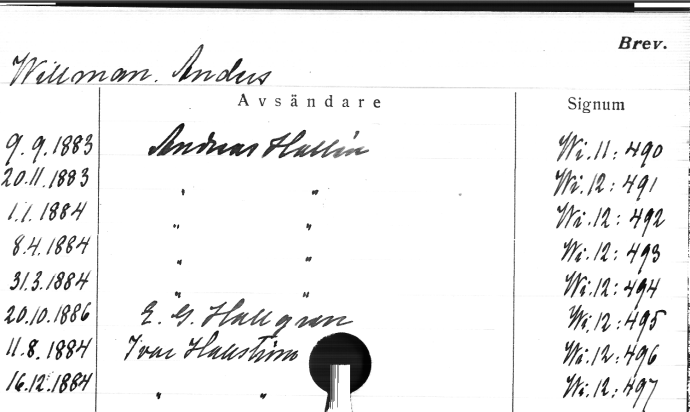 Brev.
Willman. Anders
Avsändare Signum
9.9.1883 Andreas Hallin Wi.11:490
20.11.1883 " " Wi.12:491
1.1.1884 " " Wi.12:492
8.4.1884 " " Wi.12:493
31.3.1884 " " Wi.12:494
20.10.1886 E. G. Hallgren Wi.12:495
11.8.1884 Ivar Hallström Wi.12:496
16.12.1884 " " Wi.12:497